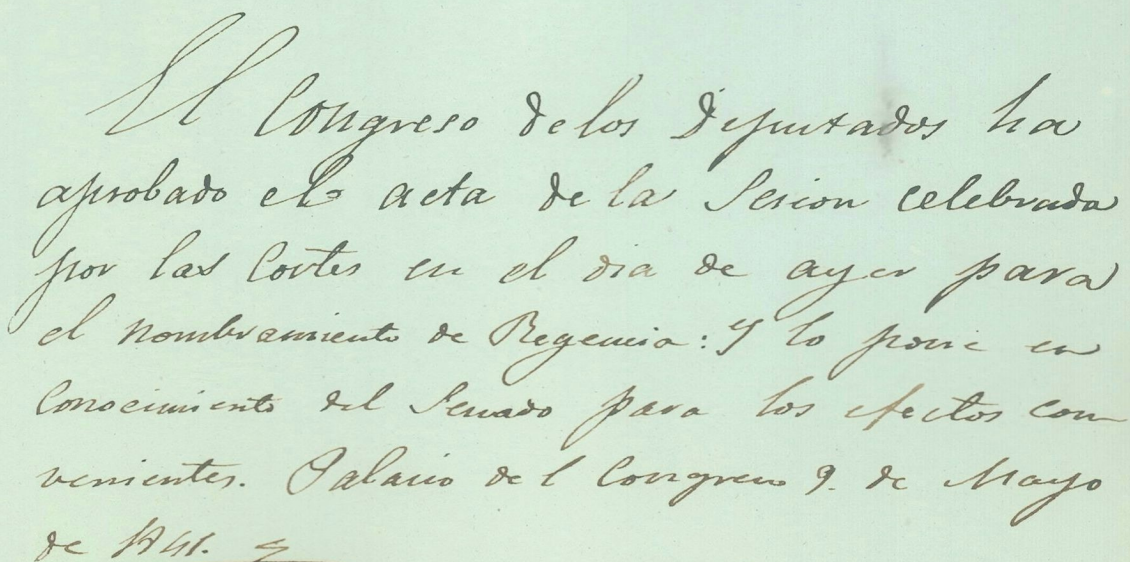 El Congreso de los Diputados ha
aprobado el acta de la Sesion celebrada
por las Cortes en el dia de ayer para
el nombramiento de Regencia: Y lo pone en
Conocimiento del Senado para los efectos con-
venientes. Palacio del Congreso 9. de Mayo
de 1841.